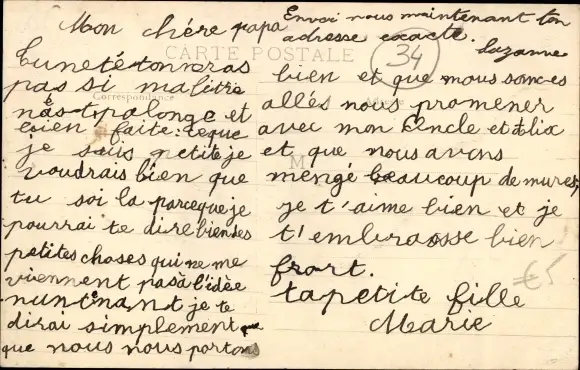 Mon chére papa
Envoi nous maintenant ton
adresse exacte.
CARTE POSTALE
34
Correspondance
tu neté tonneras
pas si malitre
nés-t-pa longe et
bien faite: ceque
je suis petite je
voudrais bien que
tu soi la parceque je
pourrai te dire bien des
petites choses qui ne me
viennent pas à l'idèe
nuntenant je te
dirai simplement que
que nous nous portons
bien et que nous somes
allés nous promener
avec mon Oncle et
et que nous avons
mengé beaucoup de mures,
je t'aime bien et je
t'embrasse bien
frort.
ta petite fille
Marie
€5